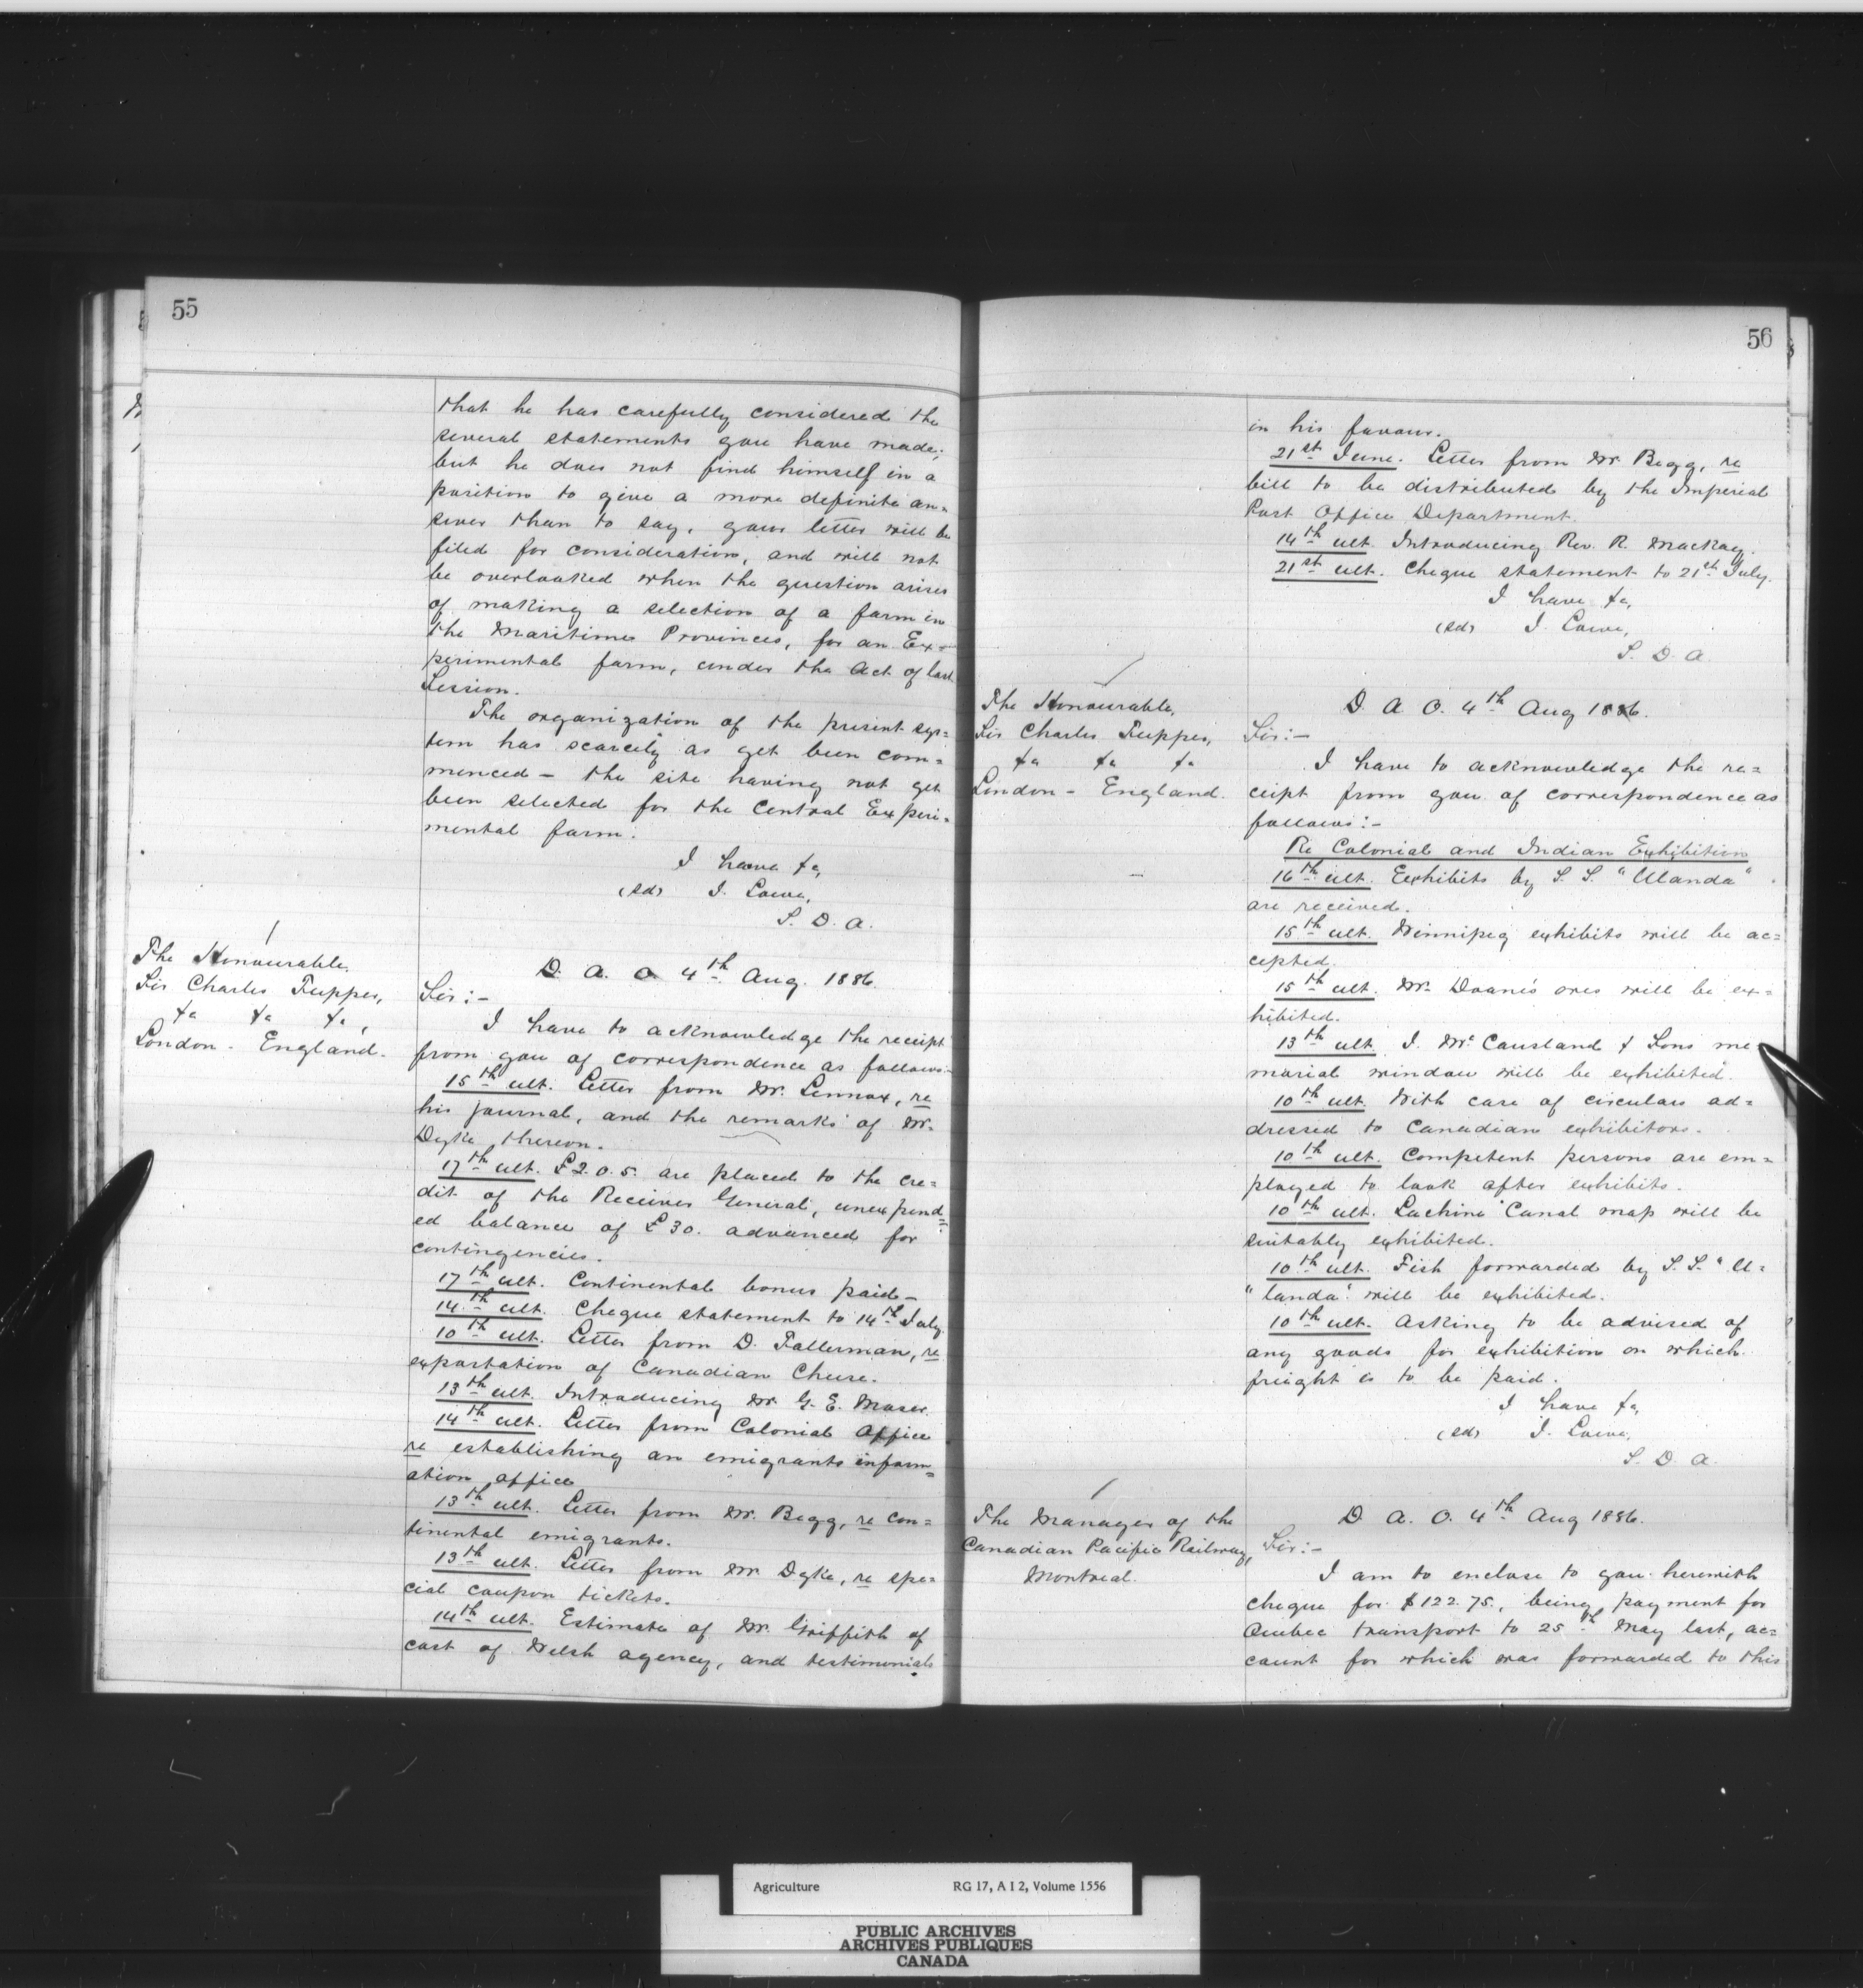 55
that he has carefully considered the
several statements you have made;
but he does not find himself in a
position to give a more definite an=
swer than to say, your letter will be
filed for consideration, and will not
be overlooked when the question arises
of making a selection of a farm in
the Maritime Provinces, for an Ex=
perimental farm, under the Act of last
Session.
The organization of the present sys=
tem has scarcely as yet been com=
menced - the site having not yet
been selected for the Central Experi=
mental farm.
I have &c,
(sd) J. Lowe,
S. D. A.
The Honourable,
Sir Charles Tupper,
&c &c &c,
London - England.
D. A. O. 4th Aug. 1886.
Sir:-
I have to acknowledge the receipt
from you of correspondence as follows:-
15th ult. Letter from Mr. Lennox, re
his journal, and the remarks of Mr.
Dyke thereon.
17th ult. £2.0.5. are placed to the cre=
dit of the Receiver General, unexpend=
ed balance of £30. advanced for
contingencies.
17th ult. Continental bonus paid -
14th ult. Cheque statement to 14th July.
10th ult. Letter from D. Tallerman, re
exportation of Canadian Cheese.
13th ult. Introducing Mr. G. E. Moser.
14th ult. Letter from Colonial Office
re establishing an emigrants inform=
ation office
13th ult. Letter from Mr. Begg, re con=
tinental emigrants.
13th ult. Letter from Mr Dyke, re spe=
cial coupon tickets.
14th ult. Estimate of Mr. Griffith of
cost of Welsh agency, and testimonials
56
in his favour.
21st June. Letter from Mr. Begg, re
bill to be distributed by the Imperial
Post Office Department.
14th ult. Introducing Rev. R. Mackay.
21st ult. Cheque statement to 21st July.
I have &c,
(sd) J. Lowe,
S. D. A.
The Honourable,
Sir Charles Tupper,
&c &c &c
London - England.
D. A. O. 4th Aug 1886.
Sir:-
I have to acknowledge the re=
ceipt from you of correspondence as
follows:-
Re Colonial and Indian Exhibition
16th ult. Exhibits by S. S. "Ulanda"
are received.
15th ult. Winnipeg exhibits will be ac=
cepted.
15th ult. Mr. Doane's ores will be ex=
hibited.
13th ult. J. McCausland & Sons me
morial window will be exhibited.
10th ult. With case of circulars ad=
dressed to Canadian exhibitors.
10th ult. Competent persons are em=
ployed to look after exhibits.
10th ult. Lachine Canal map will be
suitably exhibited.
10th ult. Fish forwarded by S. S. "U=
"landa" will be exhibited.
10th ult. Asking to be advised of
any goods for exhibition on which
freight is to be paid.
I have &c,
(sd) J. Lowe,
S. D. A.
The Manager of the
Canadian Pacific Railway,
Montreal.
D. A. O. 4th Aug 1886.
Sir:-
I am to enclose to you herewith
cheque for $122.75, being payment for
Quebec transport to 25th May last, ac=
count for which was forwarded to this
Agriculture RG 17, A I 2, Volume 1556
PUBLIC ARCHIVES
ARCHIVES PUBLIQUES
CANADA